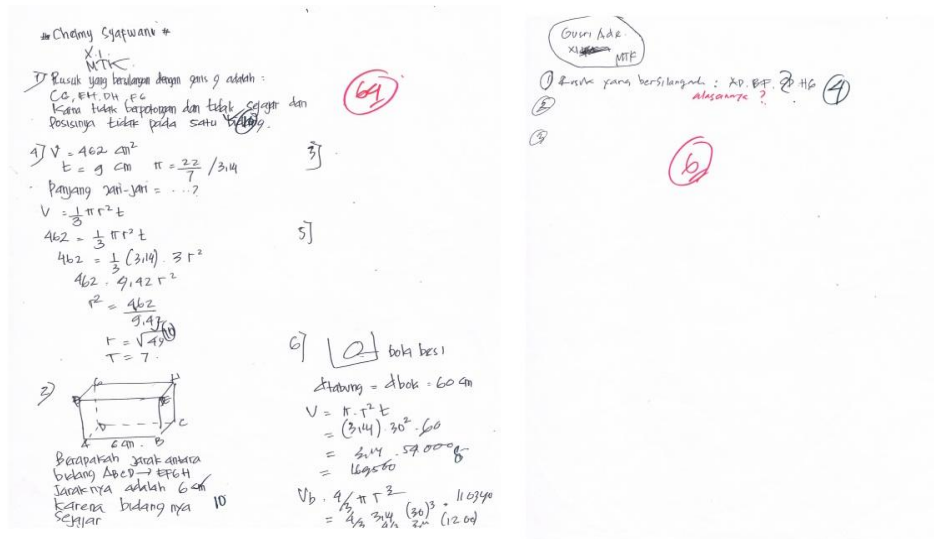 # Chelmy Syafwani #
X.1
MTK
1) Rusuk yang berulangan dengan garis g adalah :
CG, EH, DH, FG
Karna tidak berpotongan dan tidak sejajar dan
Posisinya tidak pada satu
69
4] V = 462 cm²
t = 9 cm π = 22/7 /3,14
Panjang Jari-jari = ....?
V = 1/3 π r² t
462 = 1/3 π r² t
462 = 1/3 (3,14) . 3 r²
462 . 9,42 r²
r² = 462
9,42
r = √49
r = 7.
2)
H
E
C
A 6 cm . B
Berapakah Jarak antara
bidang ABCD → EFGH
Jaraknya adalah 6 cm
Karena bidang nya 10
Sejajar
3]
5]
6] bola besi
dtabung = dbola = 60 cm
V = π . r² t
= (3,14) . 30² . 60
= 3,14 . 54.000
= 169560
Vb . 4/3 π r³
= 4/3 3,14 (30)³
Guci Ade.
XI MTK
1 Rusuk yang bersilangan : HG 4
alasannya ?
2
3
6